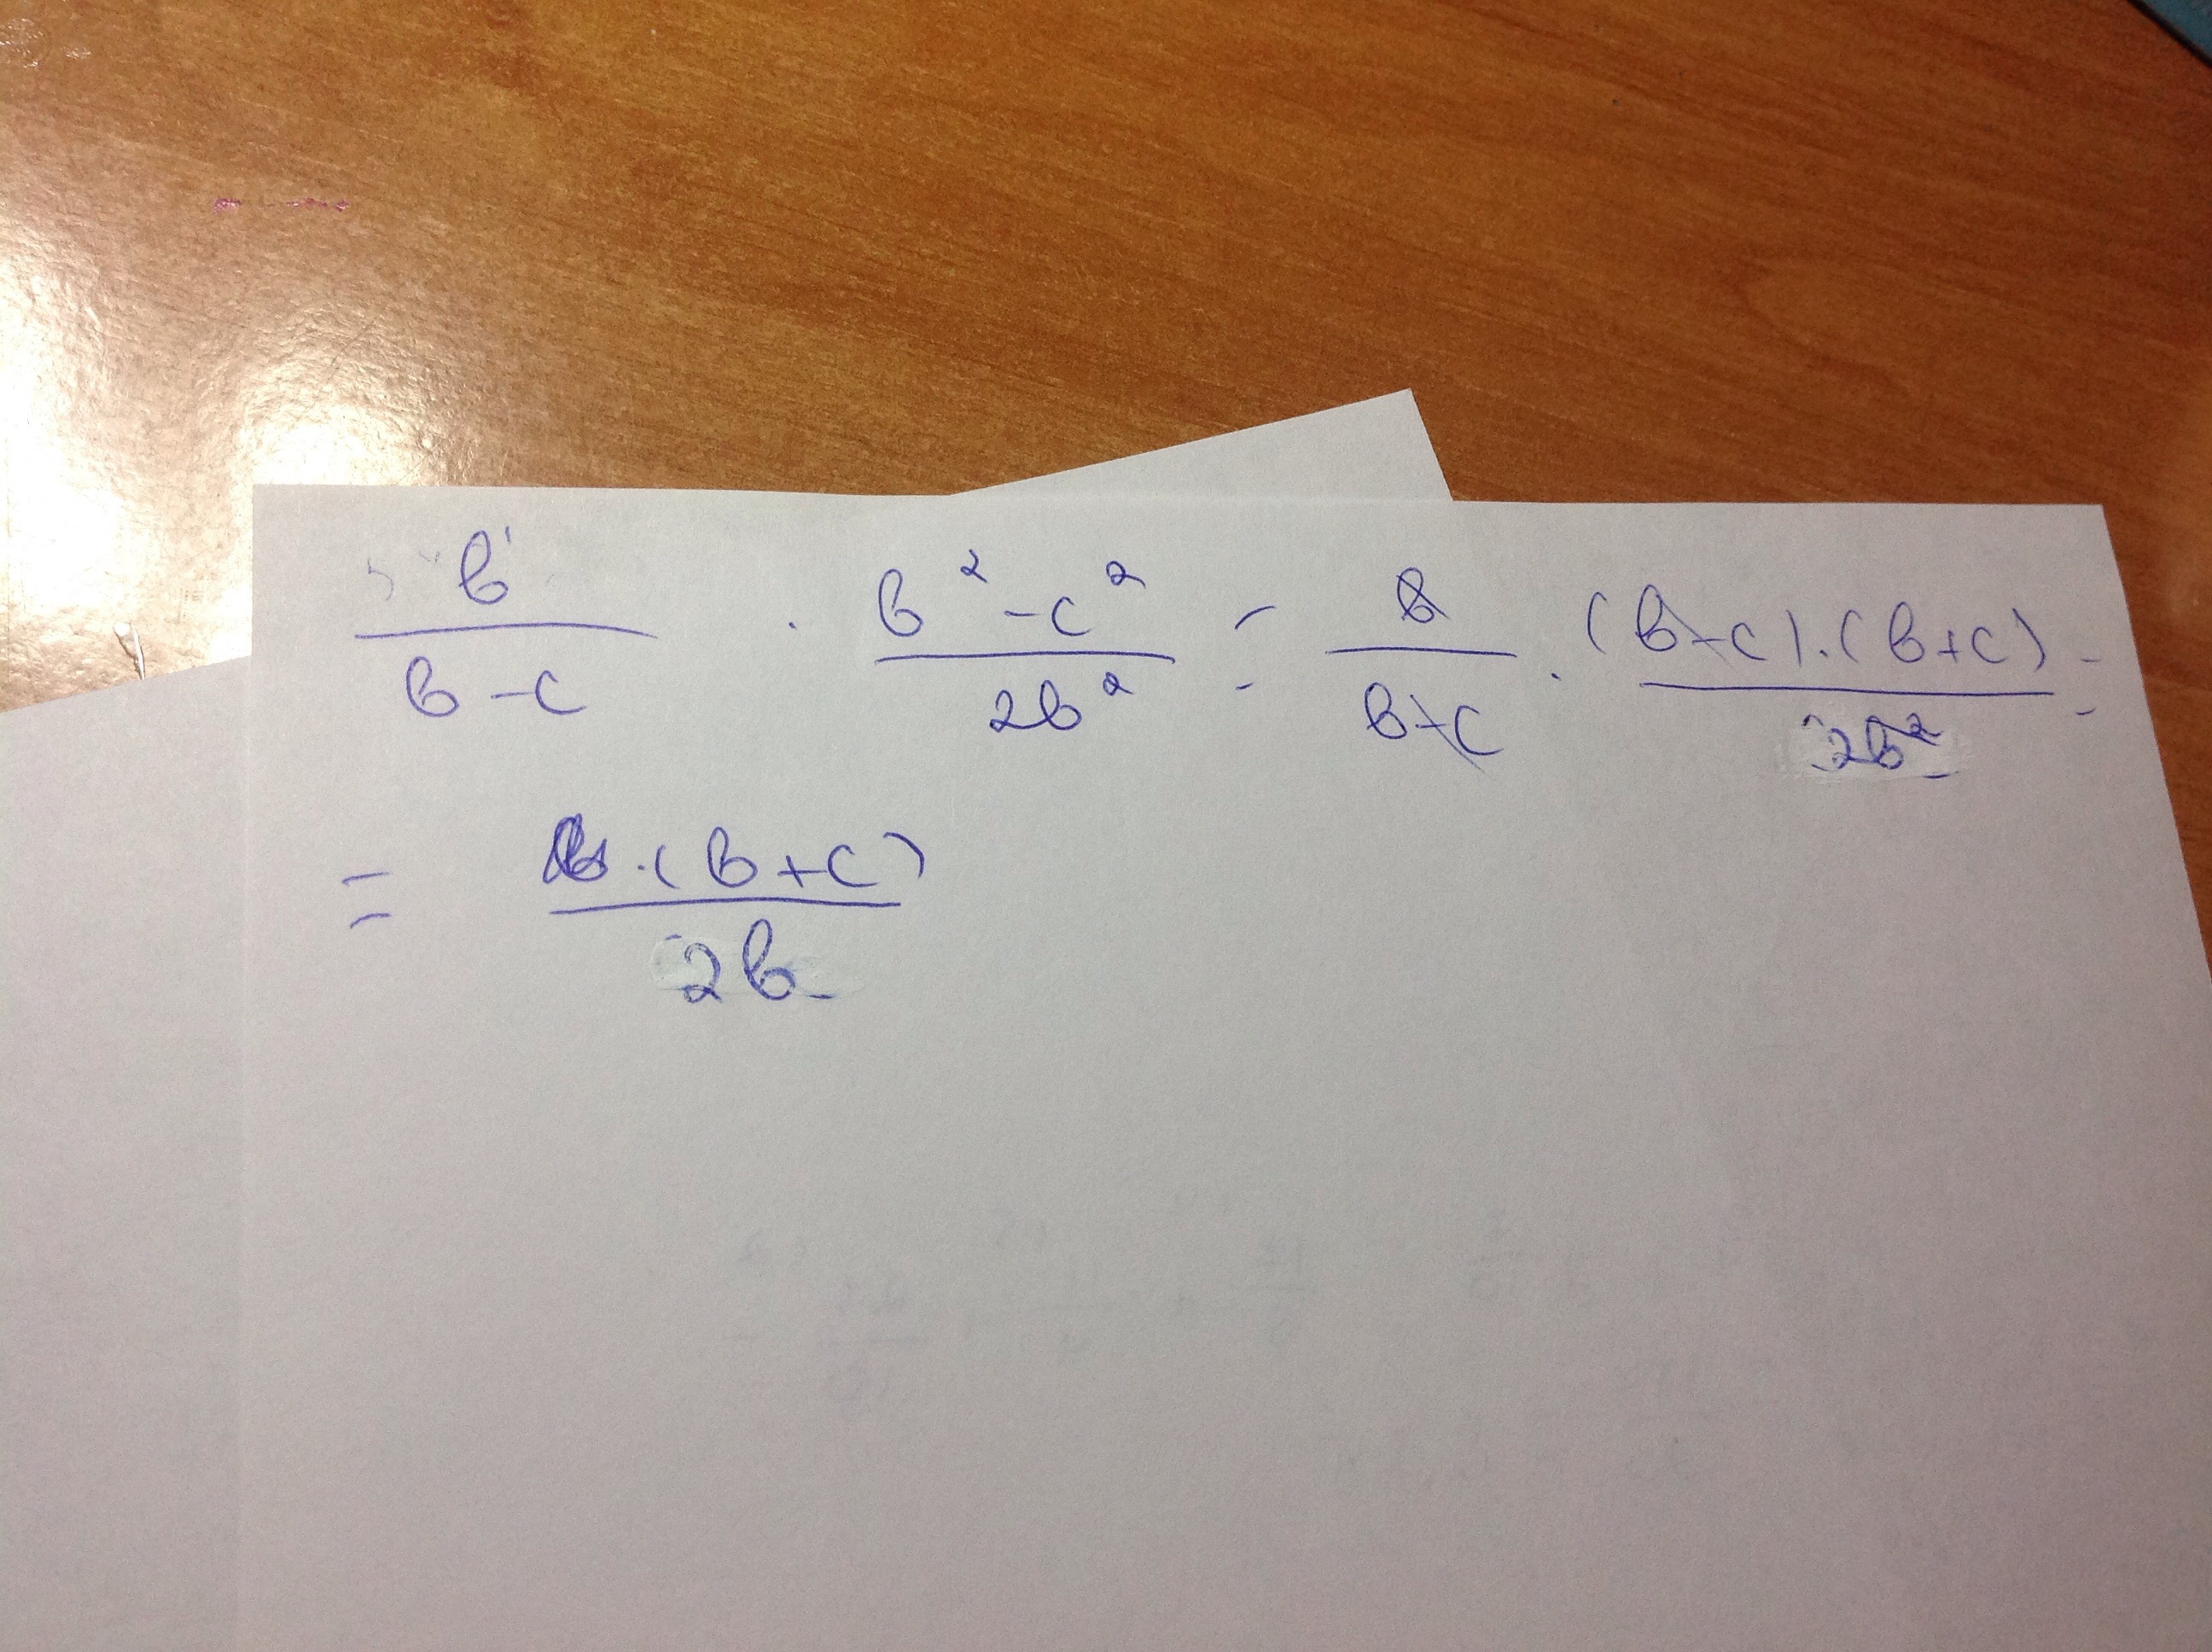 b/(b-c) · (b²-c²)/(2b²) = b/(b-c) · (b-c)·(b+c)/(2b²) =
= ·(b+c)/(2b)